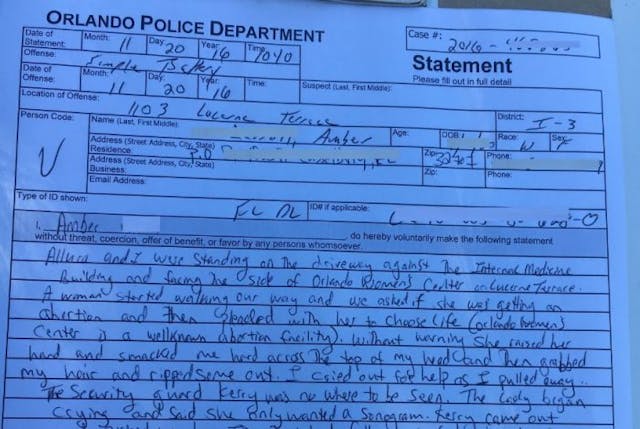 ORLANDO POLICE DEPARTMENT
Case #: 2016 -
Date of Statement: Month: 11 Day: 20 Year: 16 Time: 1040
Statement
Please fill out in full detail
Offense: Simple Battery
Date of Offense: Month: 11 Day: 20 Year: 16 Time: Suspect (Last, First Middle):
Location of Offense: 1103 Lucerne Terrace District: I-3
Person Code: V Name (Last, First Middle): Amber Age: DOB: Race: W Sex: F
Address (Street Address, City, State) Residence: P.O Zip: Phone:
Address (Street Address, City, State) Business: Zip: Phone:
Email Address:
Type of ID shown: FL DL ID# if applicable:
I, Amber do hereby voluntarily make the following statement
without threat, coercion, offer of benefit, or favor by any persons whomsoever.
Allura and I were standing on the driveway against the Internal Medicine
Building and facing the side of Orlando Women's Center on Lucerne Terrace.
A woman started walking our way and we asked if she was getting an
abortion and then pleaded with her to choose life (orlando women's
Center is a wellknown abortion facility). Without warning she raised her
hand and smacked me hard across the top of my head and then grabbed
my hair and ripped some out. I cried out for help as I pulled away.
The Security guard Kerry was no where to be seen. The lady began
crying and said she only wanted a sonogram. Kerry came out